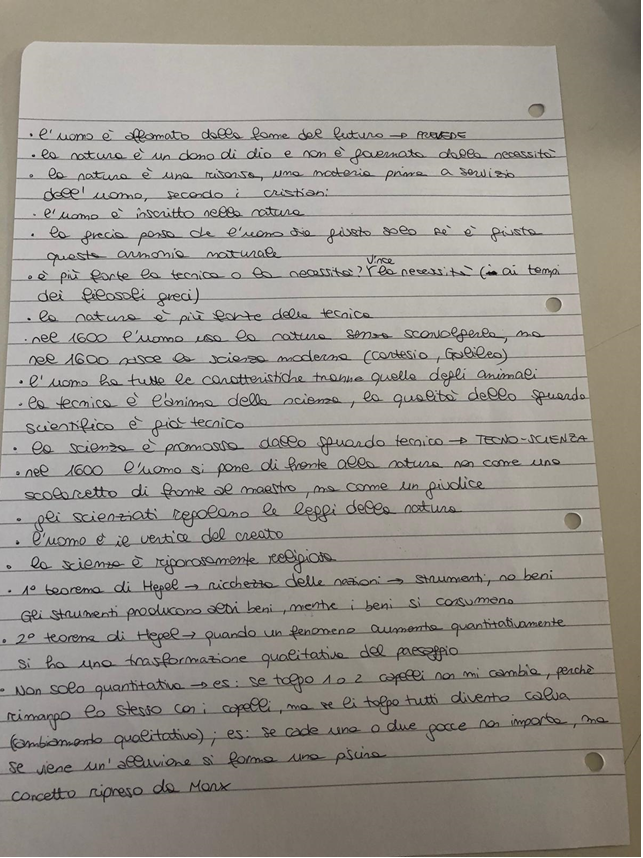 · l'uomo è affamato dalla fame del futuro → PREVEDE
· la natura è un dono di dio e non è governata dalla necessità
· la natura è una risorsa, una materia prima a servizio
dell'uomo, secondo i cristiani
· l'uomo è inscritto nella natura
· la grecia pensa che l'uomo sia giusto solo se è giusta
questa armonia naturale
· è più forte la tecnica o la necessità? vince la necessità (ai tempi
dei filosofi greci)
· la natura è più forte della tecnica
· nel 1600 l'uomo usa la natura senza sconvolgerla, ma
nel 1600 nasce la scienza moderna (cartesio, Galileo)
· l'uomo ha tutte le caratteristiche tranne quella degli animali
· la tecnica è l'anima della scienza, la qualità dello sguardo
scientifico è già tecnico
· la scienza è promossa dallo sguardo tecnico → TECNO-SCIENZA
· nel 1600 l'uomo si pone di fronte alla natura non come uno
scolaretto di fronte al maestro, ma come un giudice
· gli scienziati regolano le leggi della natura
· l'uomo è il vertice del creato
· la scienza è rigorosamente religiosa
· 1° teorema di Hegel → ricchezza delle nazioni → strumenti, no beni
Gli strumenti producono altri beni, mentre i beni si consumano
· 2° teorema di Hegel → quando un fenomeno aumenta quantitativamente
si ha una trasformazione qualitativa del paesaggio
· Non solo quantitativa → es: se tolgo 1 o 2 capelli non mi cambia, perchè
rimango lo stesso con i capelli, ma se li tolgo tutti divento calva
(cambiamento qualitativo); es: se cade una o due gocce non importa, ma
se viene un'alluvione si forma una piscina
concetto ripreso da Marx